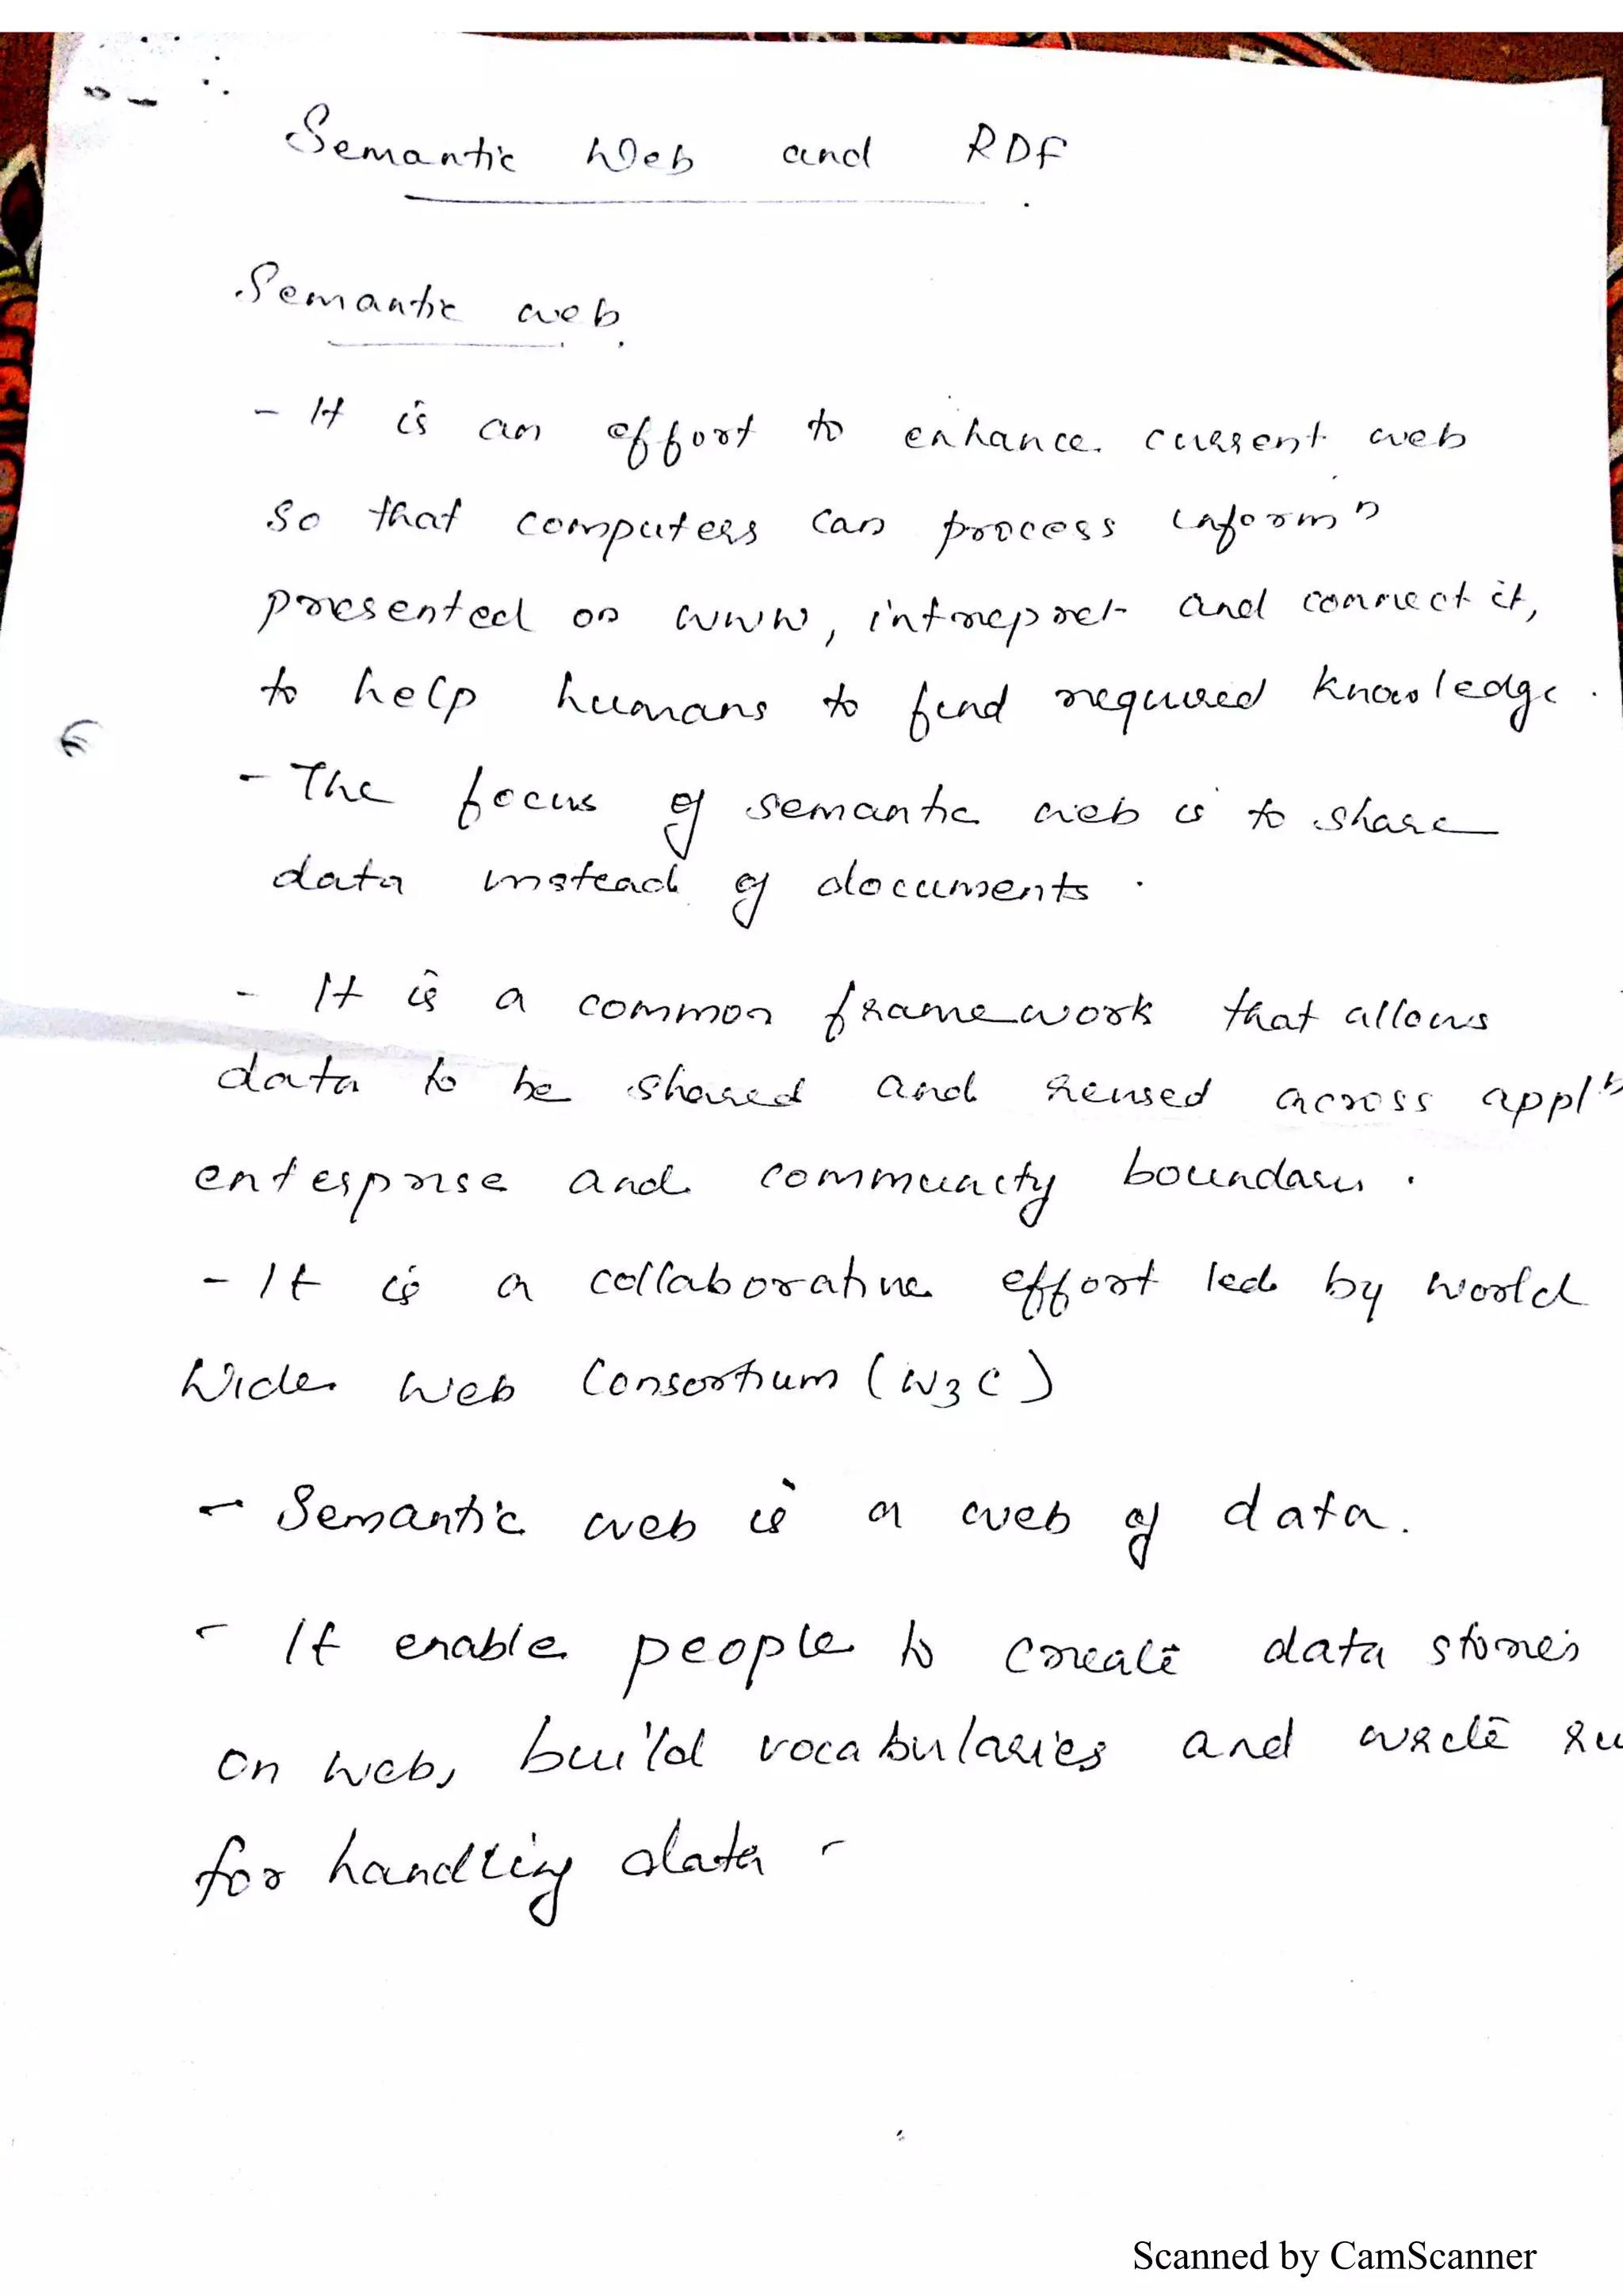 Semantic Web and RDF
Semantic web.
- It is an effort to enhance current web
so that computers can process informn
presented on www, intrepret and connect it,
to help humans to find required knowledge.
- The focus of semantic web is to share
data instead of documents.
- It is a common framework that allows
data to be shared and reused across appln
enterprise and community boundary.
- It is a collaborative effort led by world
Wide Web Consortium (W3C)
- Semantic web is a web of data.
- It enable people to create data stores
on web, build vocabularies and write
for handling data -
Scanned by CamScanner